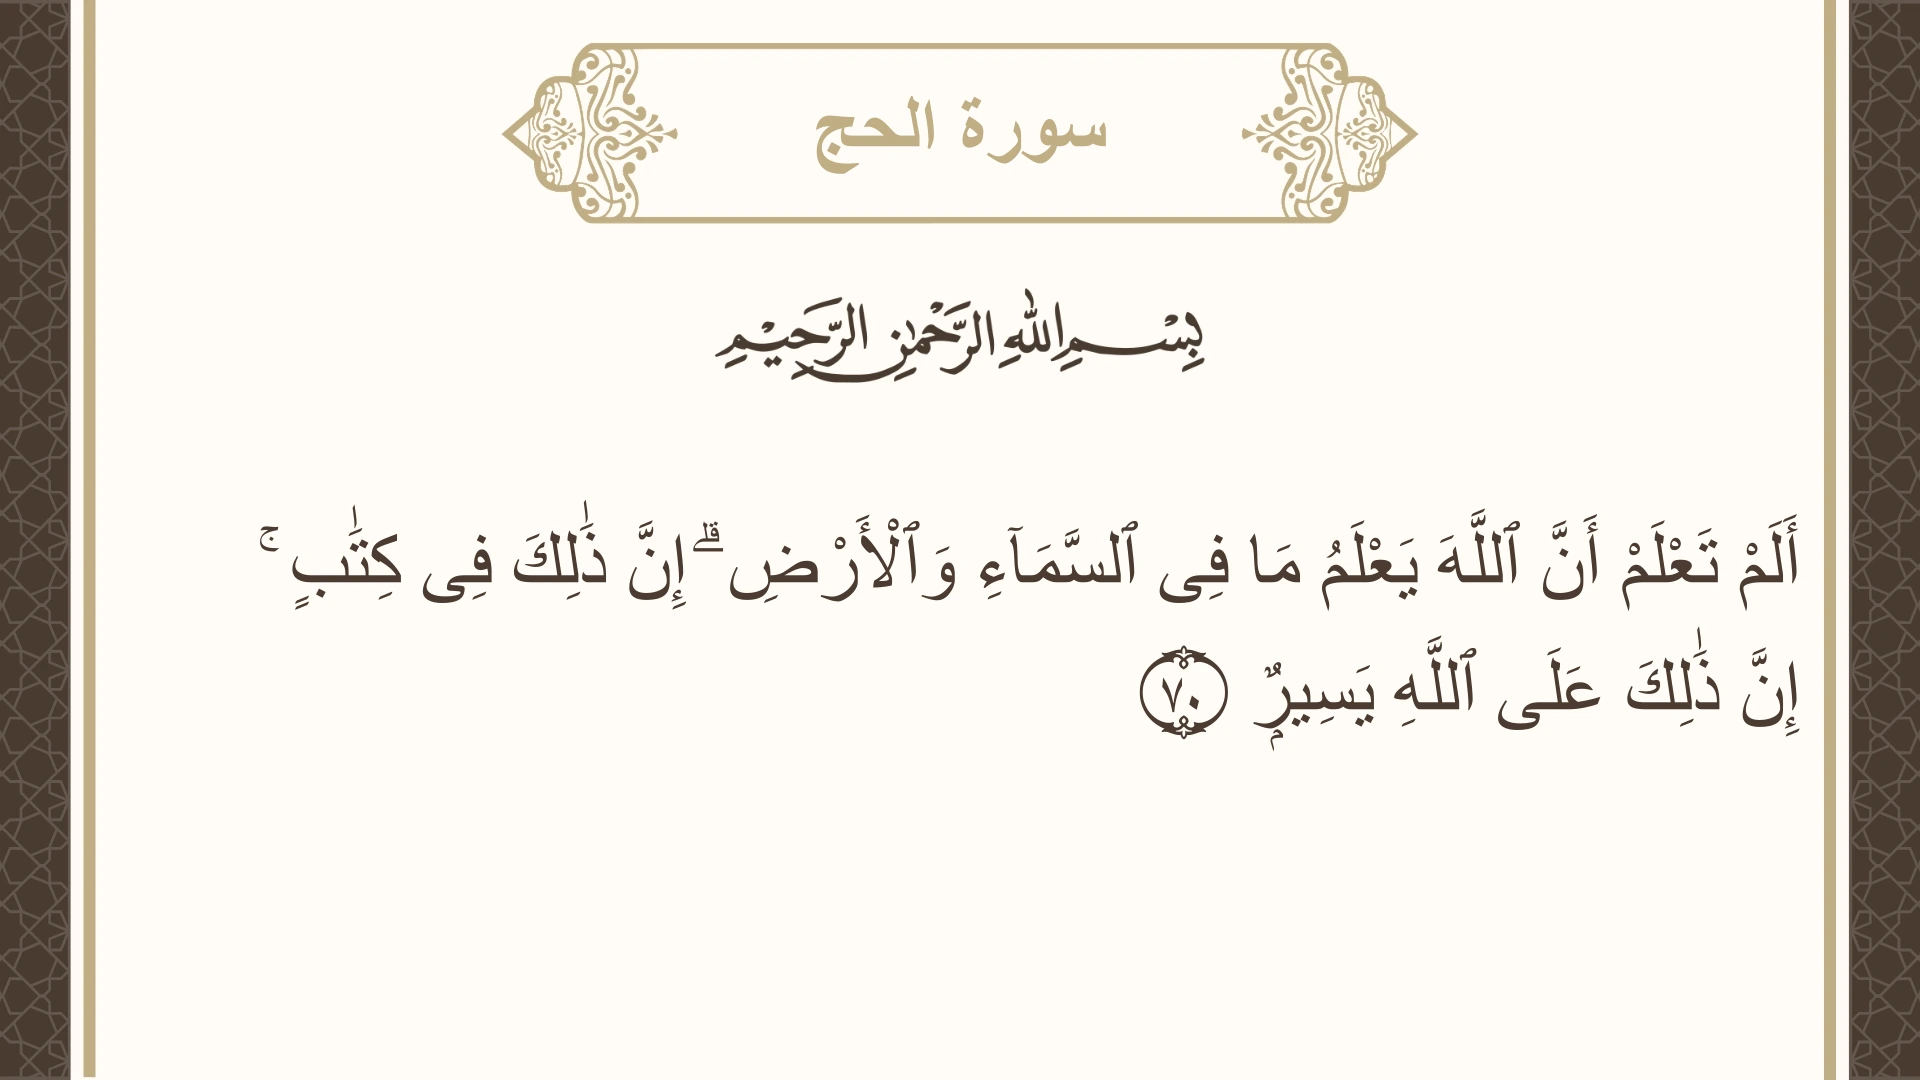 سورة الحج
بِسْمِ اللهِ الرَّحْمٰنِ الرَّحِيْمِ
أَلَمْ تَعْلَمْ أَنَّ ٱللَّهَ يَعْلَمُ مَا فِى ٱلسَّمَآءِ وَٱلْأَرْضِ ۗ إِنَّ ذَٰلِكَ فِى كِتَٰبٍ ۚ
إِنَّ ذَٰلِكَ عَلَى ٱللَّهِ يَسِيرٌۭ ۝٧٠